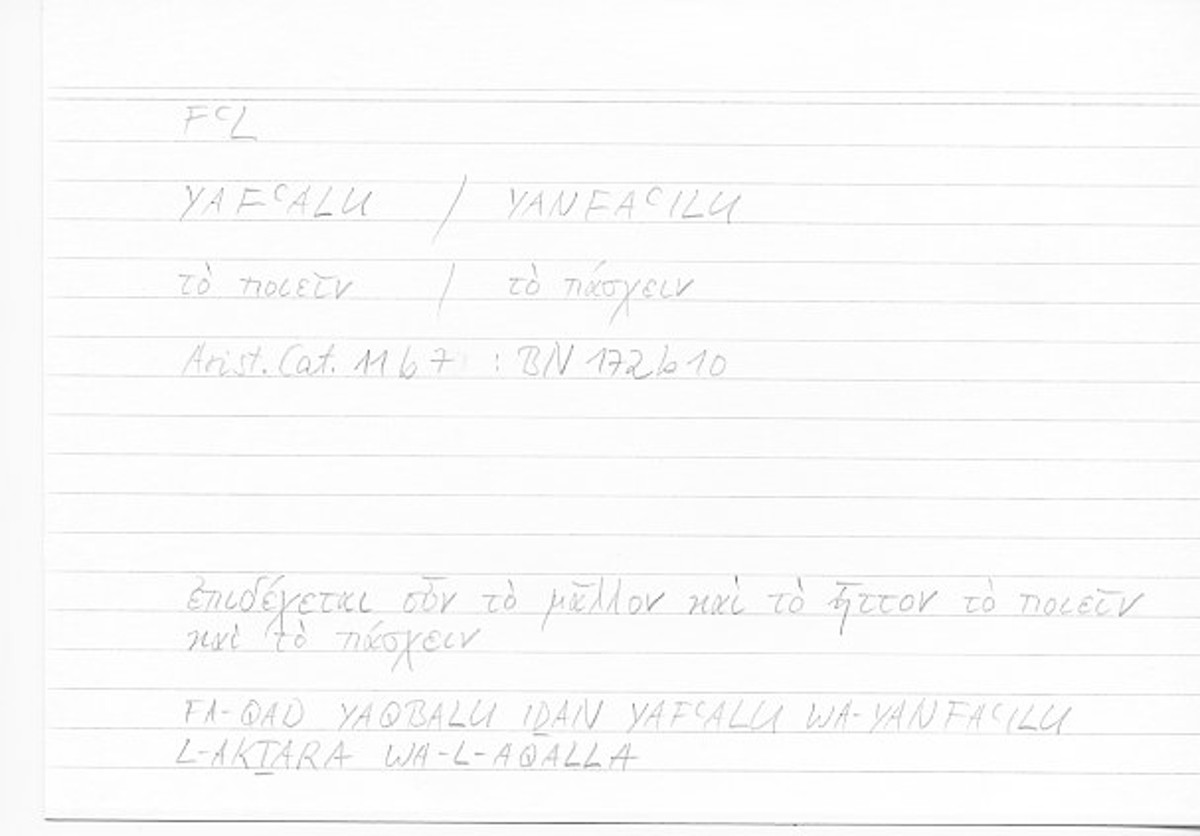 FᶜL
YAFᶜALU / YANFAᶜILU
τὸ ποιεῖν / τὸ πάσχειν
Arist. Cat. 11 b 7 : BN 172 b 10
ἐπιδέχεται οὖν τὸ μᾶλλον καὶ τὸ ἧττον τὸ ποιεῖν
καὶ τὸ πάσχειν
FA-QAD YAQBALU IḎAN YAFᶜALU WA-YANFAᶜILU
L-AKṮARA WA-L-AQALLA